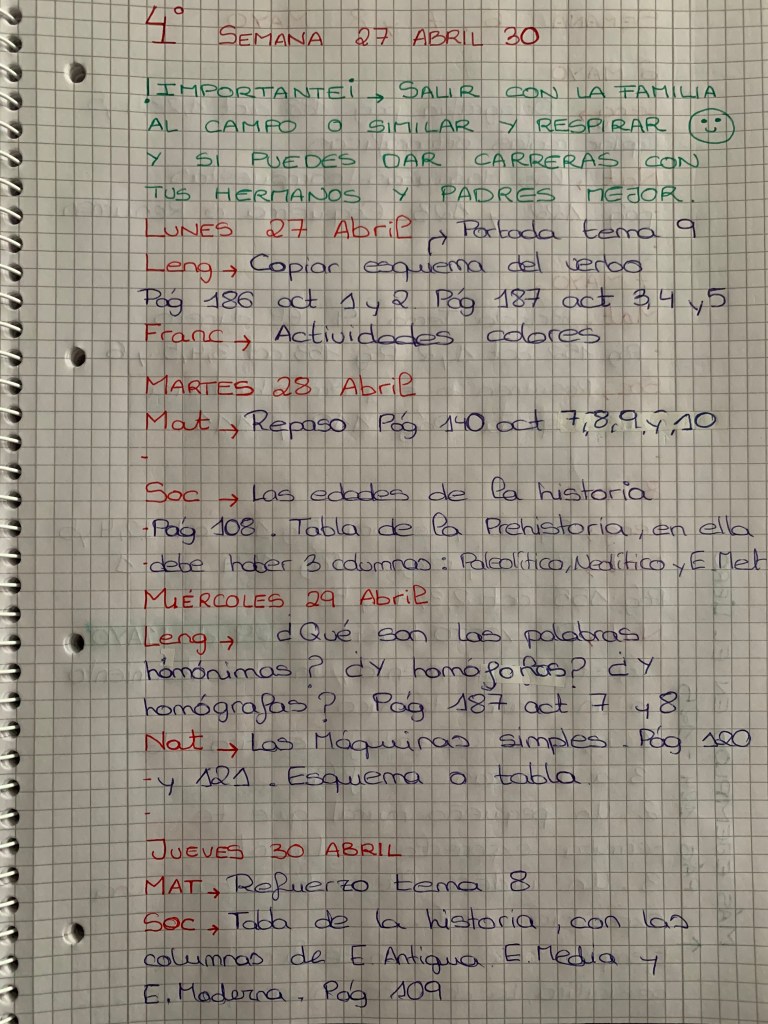 4º SEMANA 27 ABRIL 30
!IMPORTANTE¡ → SALIR CON LA FAMILIA
AL CAMPO O SIMILAR Y RESPIRAR
Y SI PUEDES DAR CARRERAS CON
TUS HERMANOS Y PADRES MEJOR.
LUNES 27 Abril → Portada tema 9
Leng → Copiar esquema del verbo
Pág 186 act 1 y 2 Pág 187 act 3,4 y 5
Franc → Actividades colores
MARTES 28 Abril
Mat → Repaso Pág 140 act 7,8,9 y 10
Soc → Las edades de la historia
-Pág 108. Tabla de la Prehistoria, en ella
-debe haber 3 columnas: Paleolítico, Neolítico y E. Met
MIÉRCOLES 29 Abril
Leng → ¿Qué son las palabras
homónimas? ¿Y homófonas? ¿Y
homógrafas? Pág 187 act 7 y 8
Nat → Las Máquinas simples. Pág 120
- y 121. Esquema o tabla
JUEVES 30 ABRIL
MAT → Refuerzo tema 8
SOC → Tabla de la historia, con las
columnas de E. Antigua E. Media y
E. Moderna. Pág 109